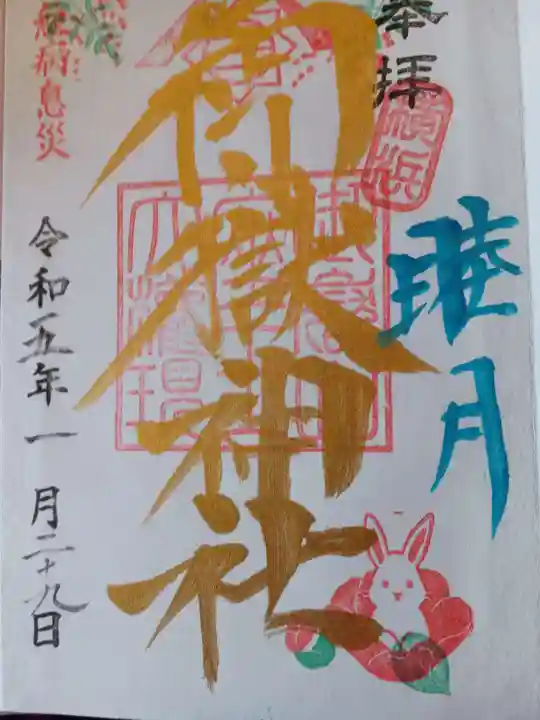 奉拝
横浜
睦月
御嶽神社
病息災
令和五年一月二十九日